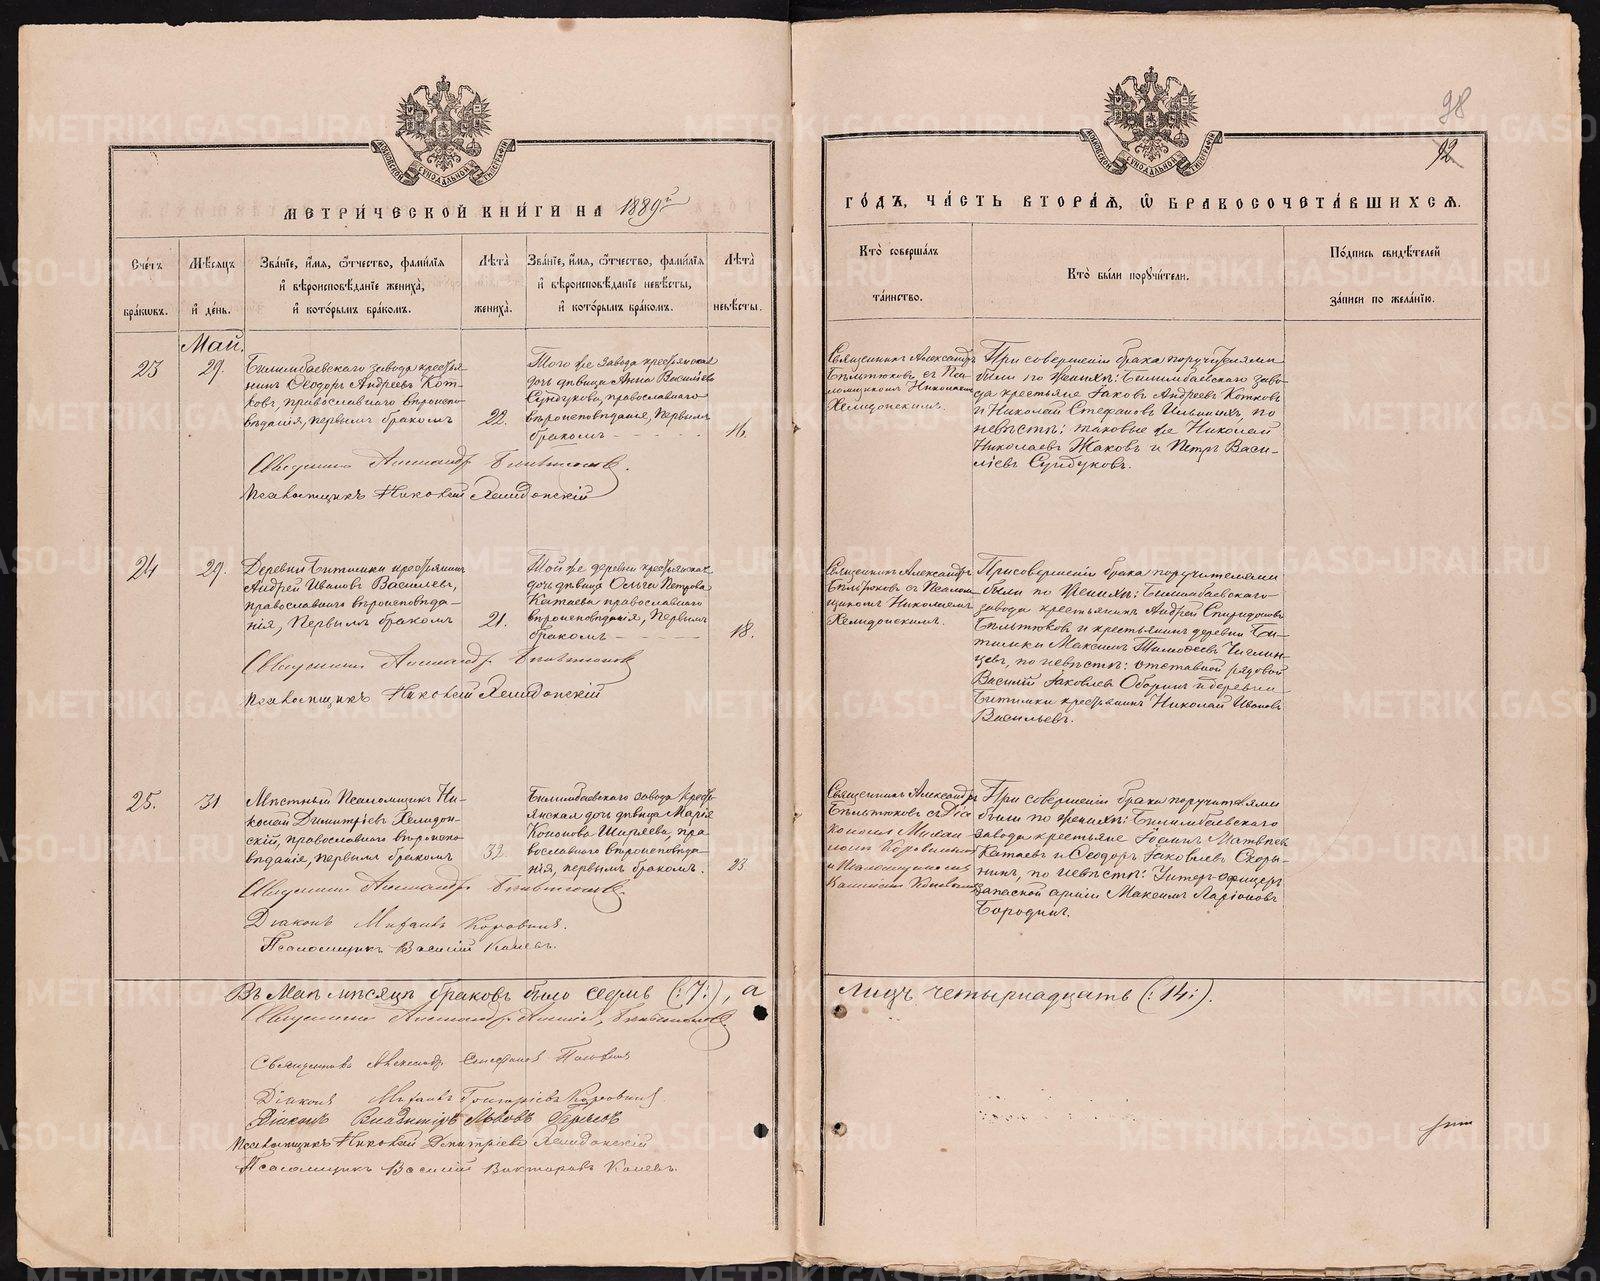 МЕТРИ́ЧЕСКОЙ КНИ́ГИ НА 1889й
Сче́тъ бра́кѡвъ.
Мѣ́сяцъ и҆ де́нь.
Зва́нїе, и҆́мя, ѻ҆́тчество, фами́лїя
и҆ вѣроисповѣ́данїе жениха̀,
и҆ кото́рымъ бра́комъ.
Лѣта̀ жениха̀.
Зва́нїе, и҆́мя, ѻ҆́тчество, фами́лїя
и҆ вѣроисповѣ́данїе невѣ́сты,
и҆ кото́рымъ бра́комъ.
Лѣта̀ невѣ́сты.
Май.
23
29.
Билимбаевскаго завода крестья
нинъ Ѳеодоръ Андреевъ Кот-
ковъ, православнаго вѣроиспо-
вѣданія, первымъ бракомъ
22.
Того же завода крестьянская
дочь дѣвица Анна Васильева
Сундукова, православнаго
вѣроисповѣданія, первымъ
бракомъ
16.
Священникъ Александръ Бѣльтюковъ.
Псаломщикъ Николай Хелидонскій
24
29.
Деревни Битимки крестьянинъ
Андрей Ивановъ Васильевъ,
православнаго вѣроисповѣда-
нія, первымъ бракомъ
21.
Той же деревни крестьянская
дочь дѣвица Ольга Петрова
Катаева православнаго
вѣроисповѣданія, первымъ
бракомъ
18.
Священникъ Александръ Бѣльтюковъ
Псаломщикъ Николай Хелидонскій
25.
31
Мѣстный Псаломщикъ Ни-
колай Димитріевъ Хелидон-
скій, православнаго вѣроиспо-
вѣданія, первымъ бракомъ
32.
Билимбаевскаго завода кресть-
янская дочь дѣвица Марія
Кононова Ширяева, пра
вославнаго вѣроисповѣда-
нія, первымъ бракомъ.
23
Священникъ Александръ Бѣльтюковъ.
Діаконъ Михаилъ Коровинъ.
Псаломщикъ Василій Каневъ.
Въ Маѣ мѣсяцѣ браковъ было седмь (:7:), а
Священникъ Александръ Бѣльтюковъ
Священникъ Александръ Поповъ
Діаконъ Михаилъ Григорьевъ Коровинъ
Діаконъ Владиміръ Львовъ
Псаломщикъ Николай Дмитріевъ Хелидонскій
Псаломщикъ Василій Викторовъ Каневъ.
98
92
ГО́ДЪ, ЧА́СТЬ ВТОРА́Я, Ѡ҆ БРАКОСОЧЕТА́ВШИХСЯ.
Кто̀ соверша́лъ та́инство.
Кто̀ бы́ли поручи́тели.
По́дпись свидѣ́телей за́писи по жела́нїю.
Священникъ Александръ
Бѣльтюковъ съ Пса-
ломщикомъ Николаемъ
Хелидонскимъ.
При совершеніи брака поручителями
были по женихѣ: Билимбаевскаго заво-
да крестьяне Іаковъ Андреевъ Котковъ
и Николай Стефановъ Ильиныхъ, по
невѣстѣ: таковые же Николай
Николаевъ Жаковъ и Петръ Васи-
льевъ Сундуковъ.
Священникъ Александръ
Бѣльтюковъ съ Псалом-
щикомъ Николаемъ
Хелидонскимъ.
При совершеніи брака поручителями
были по женихѣ: Билимбаевскаго
завода крестьянинъ Андрей Спиридоновъ
Бѣльтюковъ и крестьянинъ деревни Би-
тимки Максимъ Тимоѳеевъ
по невѣстѣ: отставной рядовой
Василій Іаковлевъ Оборинъ и деревни
Битимки крестьянинъ Николай Ивановъ
Васильевъ.
Священникъ Александръ
Бѣльтюковъ съ Діа
кономъ Михаи
ломъ Коровинымъ
и Псаломщикомъ
Василіемъ Каневымъ
При совершеніи брака поручителями
были по женихѣ: Билимбаевскаго
завода крестьяне Іосифъ Матвѣевъ
Катаевъ и Ѳеодоръ Іаковлевъ Скоры-
нинъ, по невѣстѣ: Унтеръ-офицеръ
запасной арміи Максимъ Ларіоновъ
Бородинъ.
Лицъ четырнадцать (:14:).
METRIKI.GASO-URAL.RU